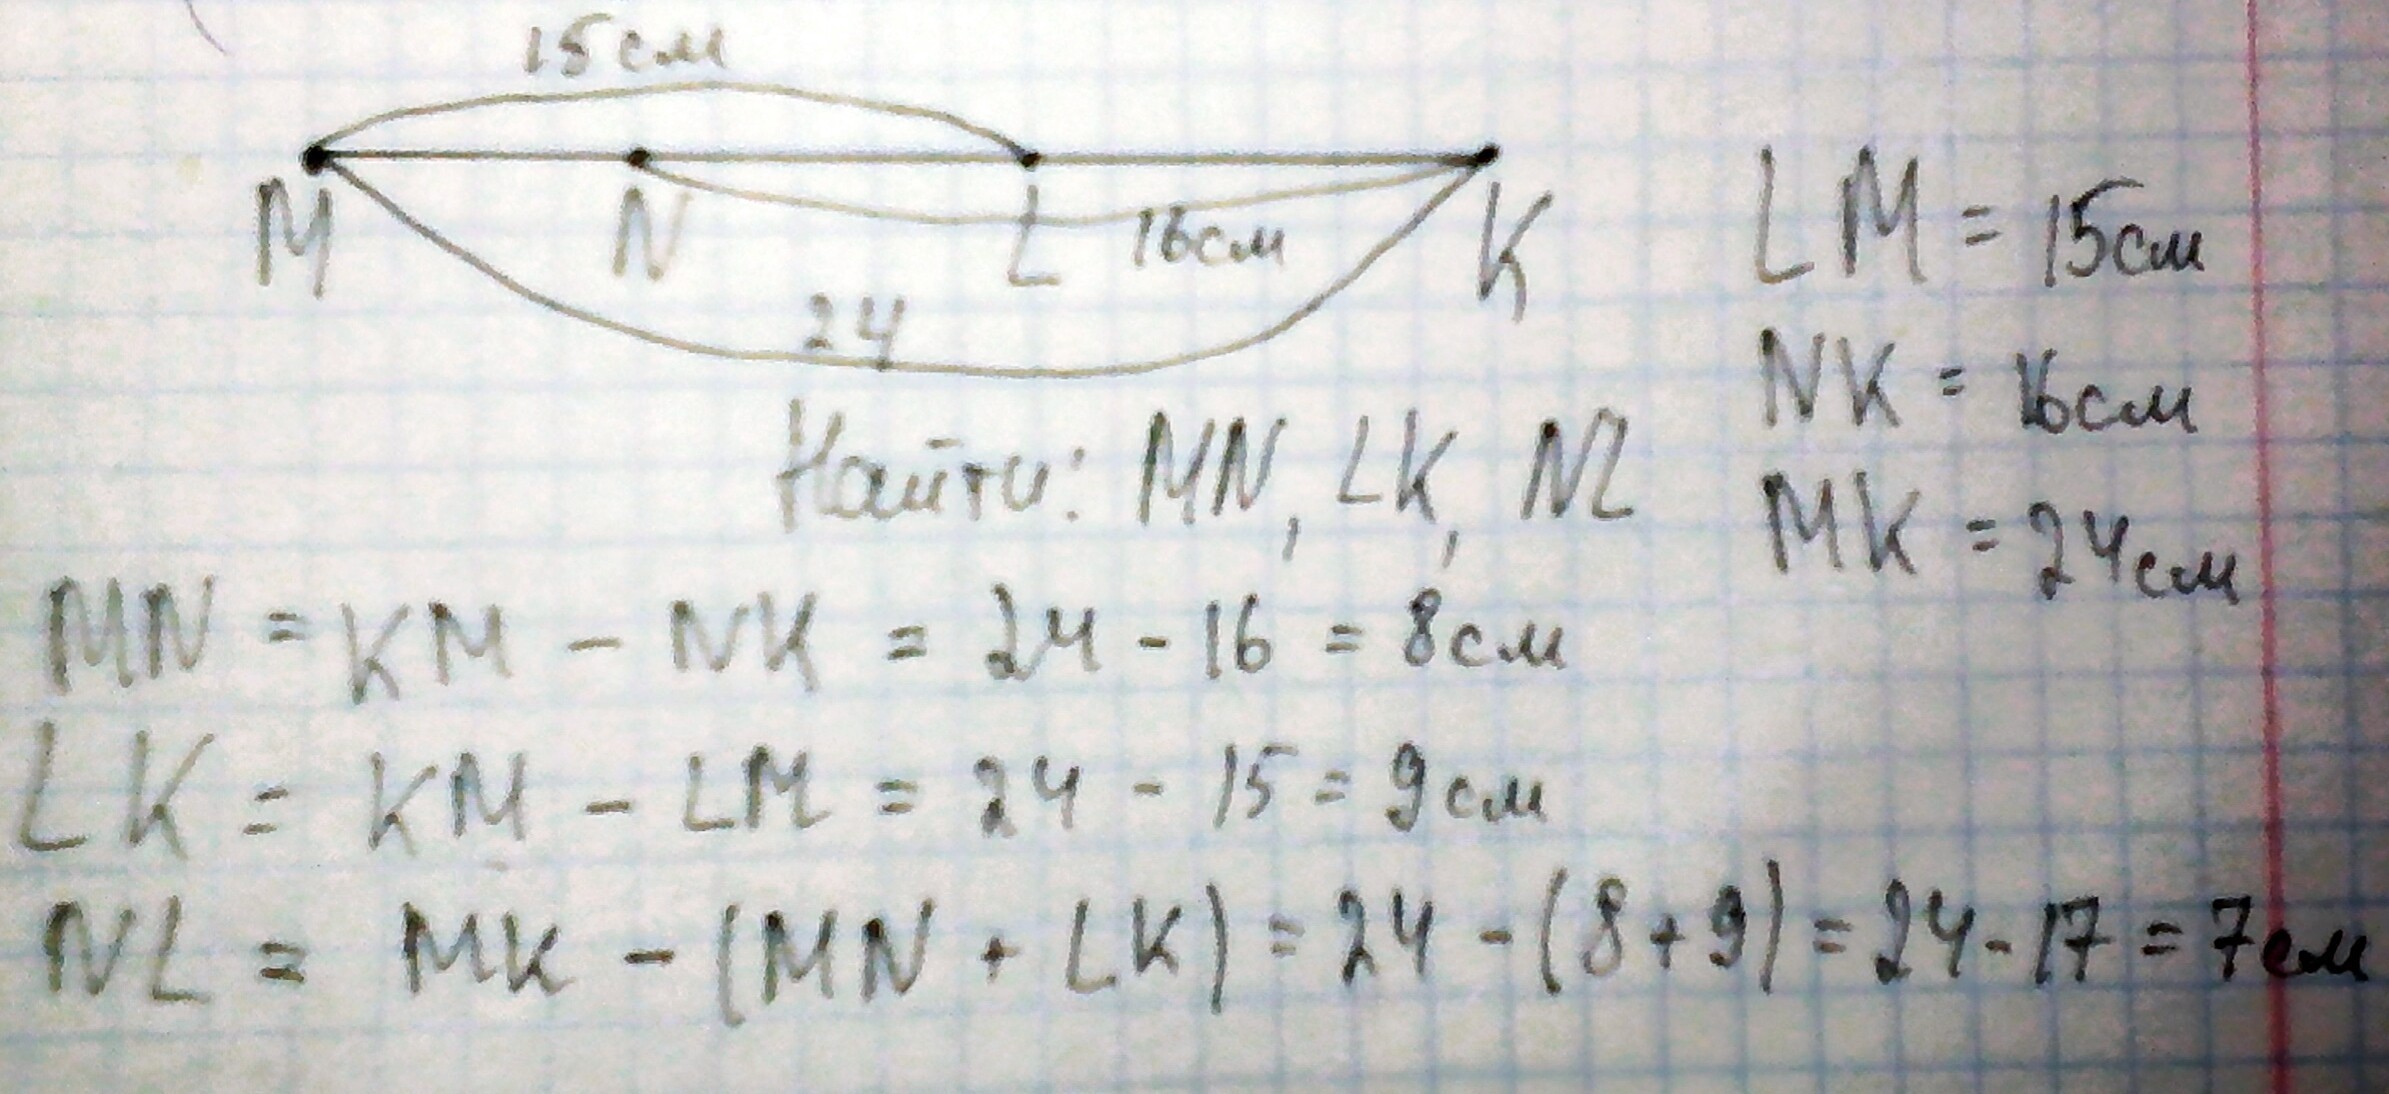 15см
M N L 16см K
24
LM = 15см
NK = 16см
MK = 24см
Найти: MN, LK, NL
MN = KM - NK = 24 - 16 = 8см
LK = KM - LM = 24 - 15 = 9см
NL = MK - (MN + LK) = 24 - (8+9) = 24 - 17 = 7см